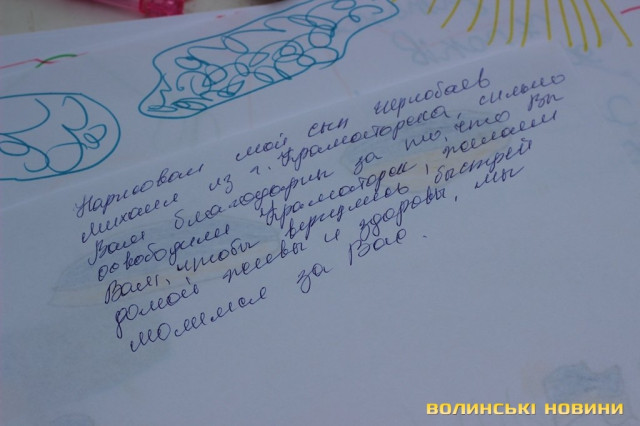 Нарисовал мой сын Чернобаев
Михаил из г. Краматорска, сильно
Вам благодарны за то, что Вы
освободили Краматорск, желаем
Вам, чтобы вернулись быстрей
домой живы и здоровы, мы
молимся за Вас.
ВОЛИНСЬКІ НОВИНИ